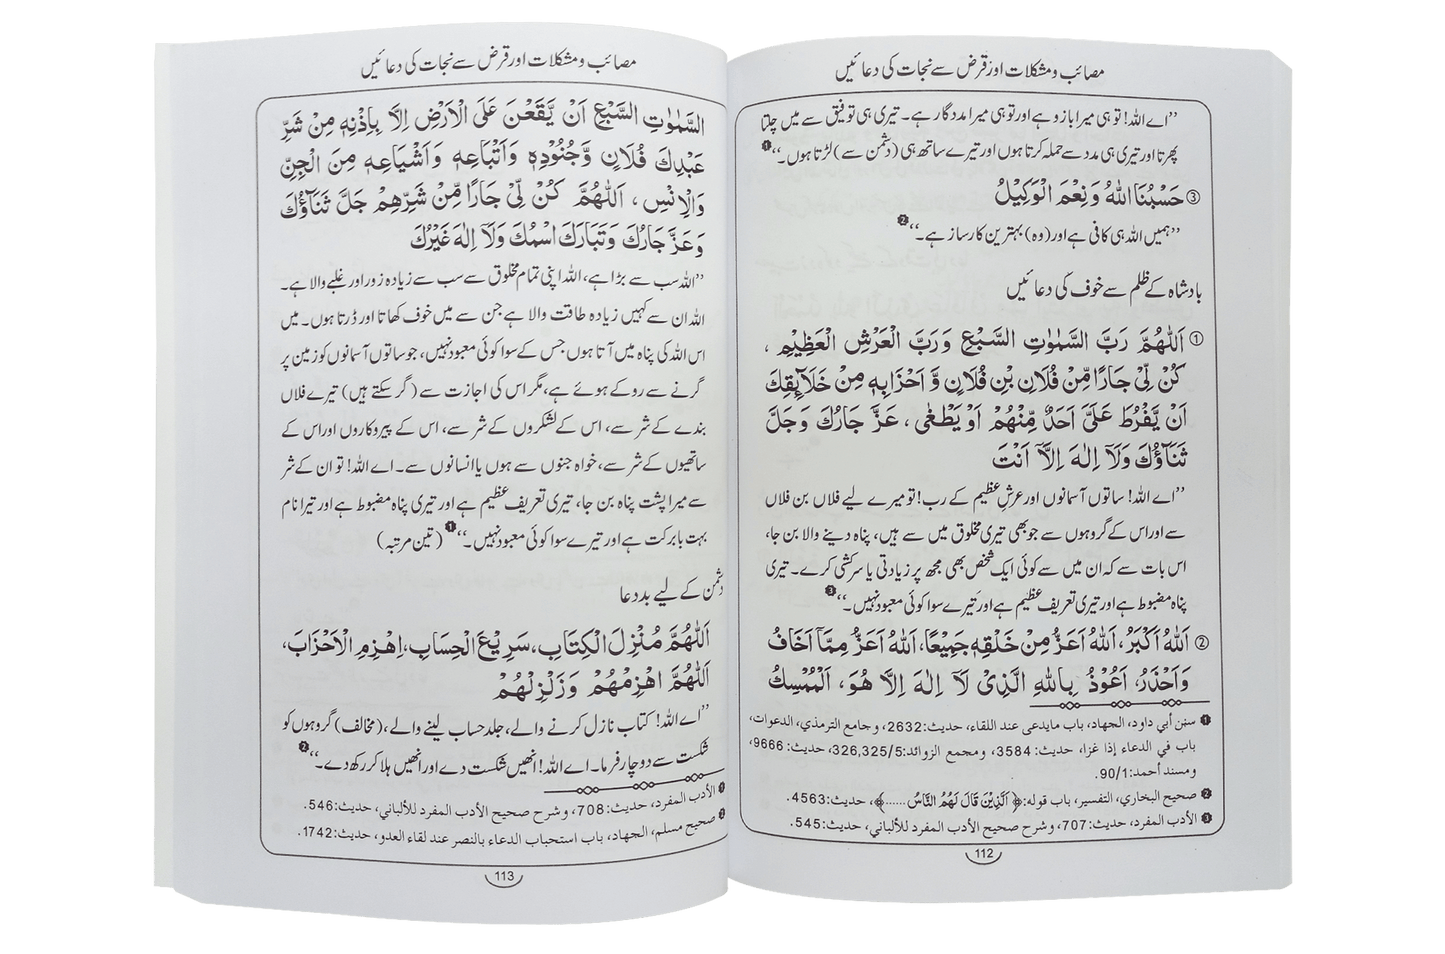 مصائب و مشکلات اور قرض سے نجات کی دعائیں
”اے اللہ! تو ہی میرا بازو ہے اور تو ہی میرا مددگار ہے۔ تیری ہی توفیق سے میں چلتا
پھرتا اور تیری ہی مدد سے حملہ کرتا ہوں اور تیرے ساتھ ہی (دشمن سے) لڑتا ہوں۔“❶
③ حَسْبُنَا اللّٰهُ وَنِعْمَ الْوَكِيْلُ
”ہمیں اللہ ہی کافی ہے اور (وہ) بہترین کارساز ہے۔“❷
بادشاہ کے ظلم سے خوف کی دعائیں
① اَللّٰهُمَّ رَبَّ السَّمٰوٰتِ السَّبْعِ وَرَبَّ الْعَرْشِ الْعَظِيْمِ ،
كُنْ لِّىْ جَارًا مِّنْ فُلَانِ بْنِ فُلَانٍ وَّ اَحْزَابِهٖ مِنْ خَلَآئِقِكَ
اَنْ يَّفْرُطَ عَلَىَّ اَحَدٌ مِّنْهُمْ اَوْ يَطْغٰى ، عَزَّ جَارُكَ وَجَلَّ
ثَنَاؤُكَ وَلَا اِلٰهَ اِلَّا اَنْتَ
”اے اللہ! ساتوں آسمانوں اور عرشِ عظیم کے رب! تو میرے لیے فلاں بن فلاں
سے اور اس کے گروہوں سے جو بھی تیری مخلوق میں سے ہیں، پناہ دینے والا بن جا،
اس بات سے کہ ان میں سے کوئی ایک شخص بھی مجھ پر زیادتی یا سرکشی کرے۔ تیری
پناہ مضبوط ہے اور تیری تعریف عظیم ہے اور تیرے سوا کوئی معبود نہیں۔“❸
② اَللّٰهُ اَكْبَرُ، اَللّٰهُ اَعَزُّ مِنْ خَلْقِهٖ جَمِيْعًا، اَللّٰهُ اَعَزُّ مِمَّآ اَخَافُ
وَاَحْذَرُ، اَعُوْذُ بِاللّٰهِ الَّذِىْ لَآ اِلٰهَ اِلَّا هُوَ، اَلْمُمْسِكُ
❶ سنن أبي داود، الجهاد، باب مايدعى عند اللقاء، حديث:2632، و جامع الترمذي، الدعوات،
باب في الدعاء إذا غزا، حديث: 3584، ومجمع الزوائد:5/326,325، حديث: 9666،
ومسند أحمد:90/1.
❷ صحيح البخاري، التفسير، باب قوله:﴿ اَلَّذِيْنَ قَالَ لَهُمُ النَّاسُ ......﴾، حديث:4563.
❸ الأدب المفرد، حديث:707، وشرح صحيح الأدب المفرد للألباني، حديث:545.
112
مصائب و مشکلات اور قرض سے نجات کی دعائیں
السَّمٰوٰتِ السَّبْعِ اَنْ يَّقَعْنَ عَلَى الْاَرْضِ اِلَّا بِاِذْنِهٖ مِنْ شَرِّ
عَبْدِكَ فُلَانٍ وَّجُنُوْدِهٖ وَاَتْبَاعِهٖ وَاَشْيَاعِهٖ مِنَ الْجِنِّ
وَالْاِنْسِ ، اَللّٰهُمَّ كُنْ لِّىْ جَارًا مِّنْ شَرِّهِمْ جَلَّ ثَنَآؤُكَ
وَعَزَّ جَارُكَ وَتَبَارَكَ اسْمُكَ وَلَآ اِلٰهَ غَيْرُكَ
”اللہ سب سے بڑا ہے، اللہ اپنی تمام مخلوق سے سب سے زیادہ زور اور غلبے والا ہے۔
اللہ ان سے کہیں زیادہ طاقت والا ہے جن سے میں خوف کھاتا اور ڈرتا ہوں۔ میں
اس اللہ کی پناہ میں آتا ہوں جس کے سوا کوئی معبود نہیں، جو ساتوں آسمانوں کو زمین پر
گرنے سے روکے ہوئے ہے، مگر اس کی اجازت سے (گر سکتے ہیں) تیرے فلاں
بندے کے شر سے، اس کے لشکروں کے شر سے، اس کے پیروکاروں اور اس کے
ساتھیوں کے شر سے، خواہ جنوں سے ہوں یا انسانوں سے۔ اے اللہ! تو ان کے شر
سے میرا پشت پناہ بن جا، تیری تعریف عظیم ہے اور تیری پناہ مضبوط ہے اور تیرا نام
بہت بابرکت ہے اور تیرے سوا کوئی معبود نہیں۔“❶ (تین مرتبہ)
دشمن کے لیے بددعا
اَللّٰهُمَّ مُنْزِلَ الْكِتَابِ، سَرِيْعَ الْحِسَابِ، اِهْزِمِ الْاَحْزَابَ،
اَللّٰهُمَّ اهْزِمْهُمْ وَزَلْزِلْهُمْ
”اے اللہ! کتاب نازل کرنے والے، جلد حساب لینے والے، (مخالف) گروہوں کو
شکست سے دوچار فرما۔ اے اللہ! انھیں شکست دے اور انھیں ہلا کر رکھ دے۔“❷
❶ الأدب المفرد، حديث:708، وشرح صحيح الأدب المفرد للألباني، حديث:546.
❷ صحيح مسلم، الجهاد، باب استحباب الدعاء بالنصر عند لقاء العدو، حديث:1742.
113